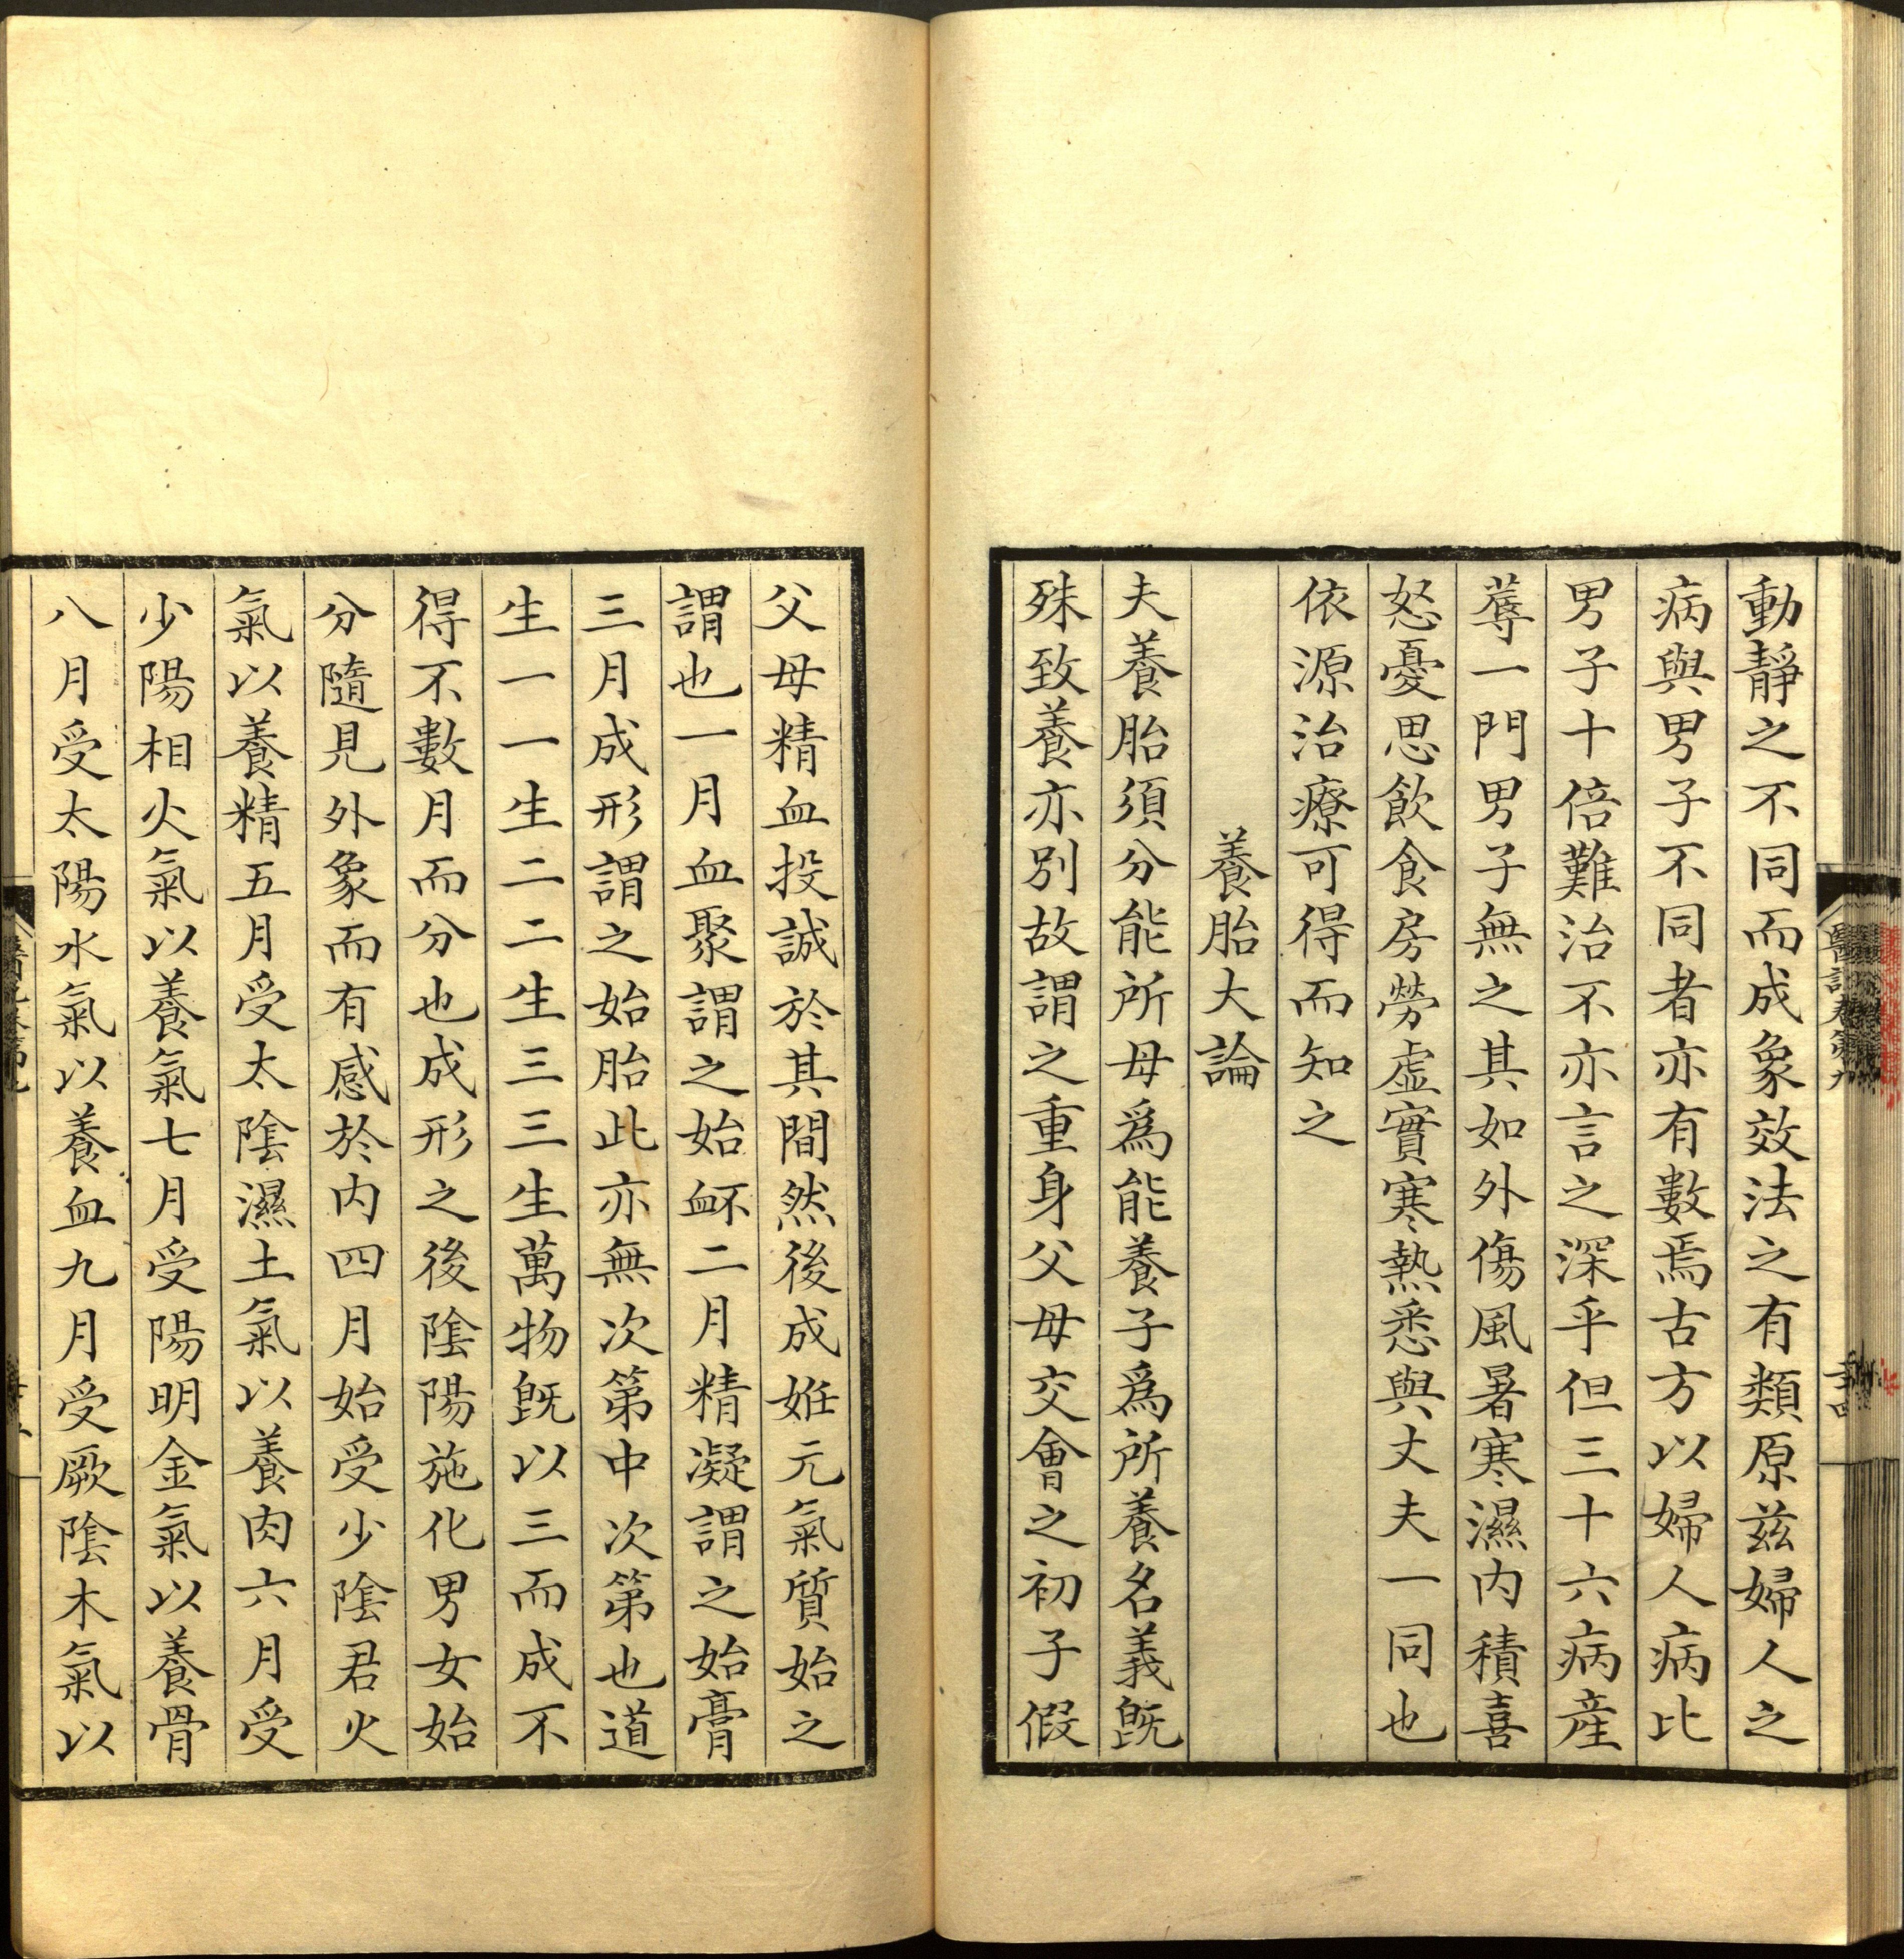 動靜之不同而成象效法之有類原兹婦人之
病與男子不同者亦有數焉古方以婦人病比
男子十倍難治不亦言之深乎但三十六病産
蓐一門男子無之其如外傷風暑寒濕内積喜
怒憂思飲食房勞虛實寒熱悉與丈夫一同也
依源治療可得而知之
養胎大論
夫養胎須分能所母爲能養子爲所養名義既
殊致養亦别故謂之重身父母交會之初子假
父母精血投誠於其間然後成姙元氣質始之
謂也一月血聚謂之始衃二月精凝謂之始膏
三月成形謂之始胎此亦無次第中次第也道
生一一生二二生三三生萬物既以三而成不
得不數月而分也成形之後陰陽施化男女始
分隨見外象而有感於内四月始受少陰君火
氣以養精五月受太陰濕土氣以養肉六月受
少陽相火氣以養氣七月受陽明金氣以養骨
八月受太陽水氣以養血九月受厥陰木氣以